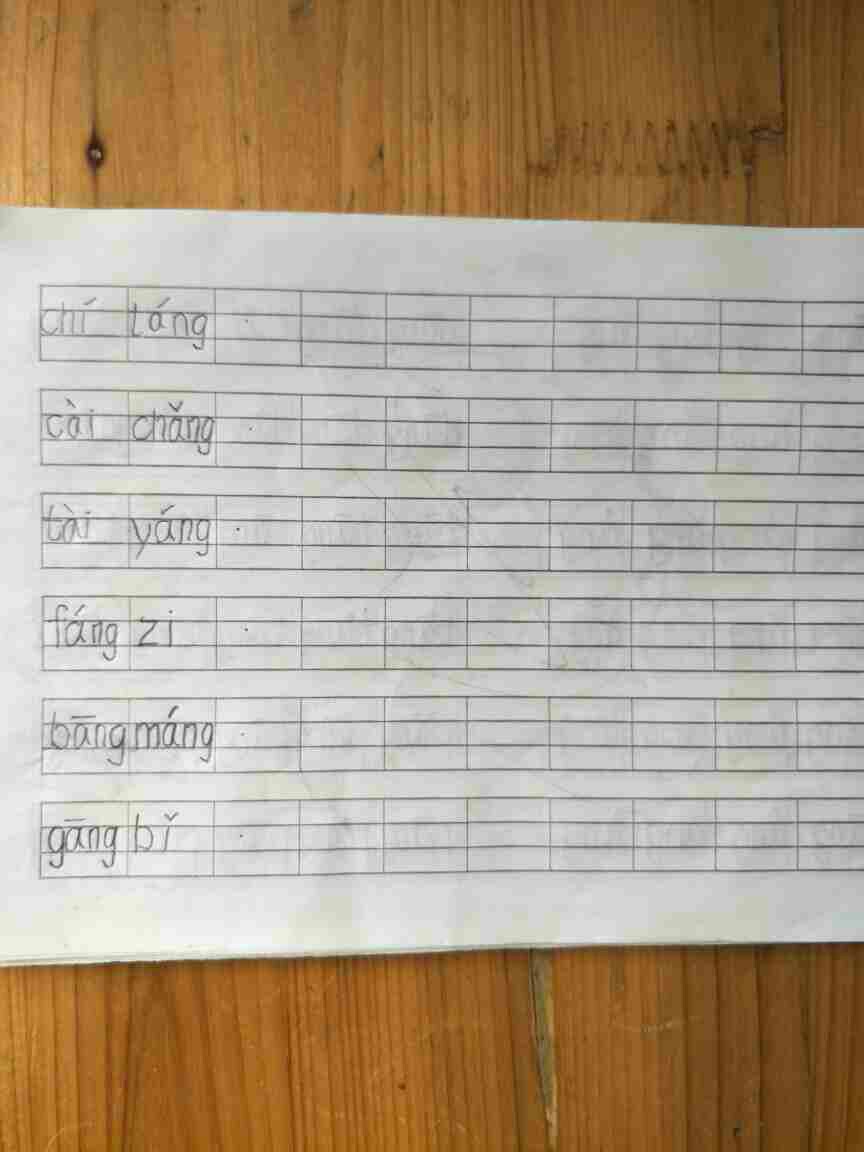 chí táng
cài chǎng
tài yáng
fáng zi
bāng máng
gāng bǐ